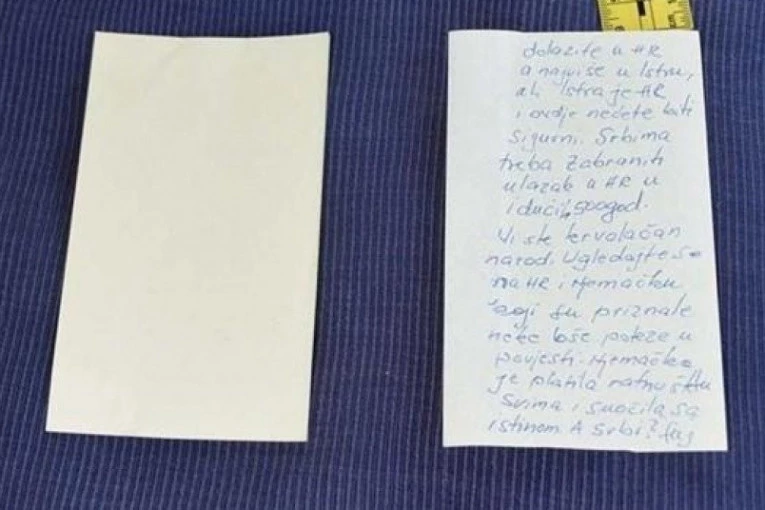 dolazite u HR
a najviše u Istru,
ali Istra je HR
i ovdje nećete biti
sigurni. Srbima
treba zabraniti
ulazak u HR u
idućih 500 god.
Vi ste krvolačan
narod. Ugledajte se
na HR i Njemačku
koji su priznale
neke loše poteze u
povjesti. Njemačka
je platila ratnu štetu
svima i suočila sa
istinom. A Srbi? Fuj